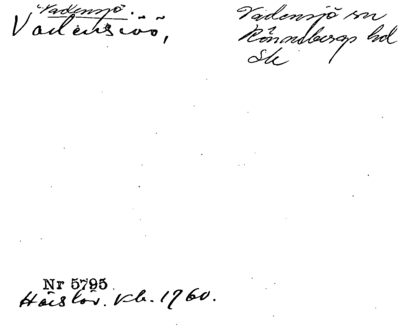 Vadensjö.
Vadensiöö,
Vadensjö sn
Rönnebergs hd
Sk
Nr 5795
Häslöv. Kb. 1760.